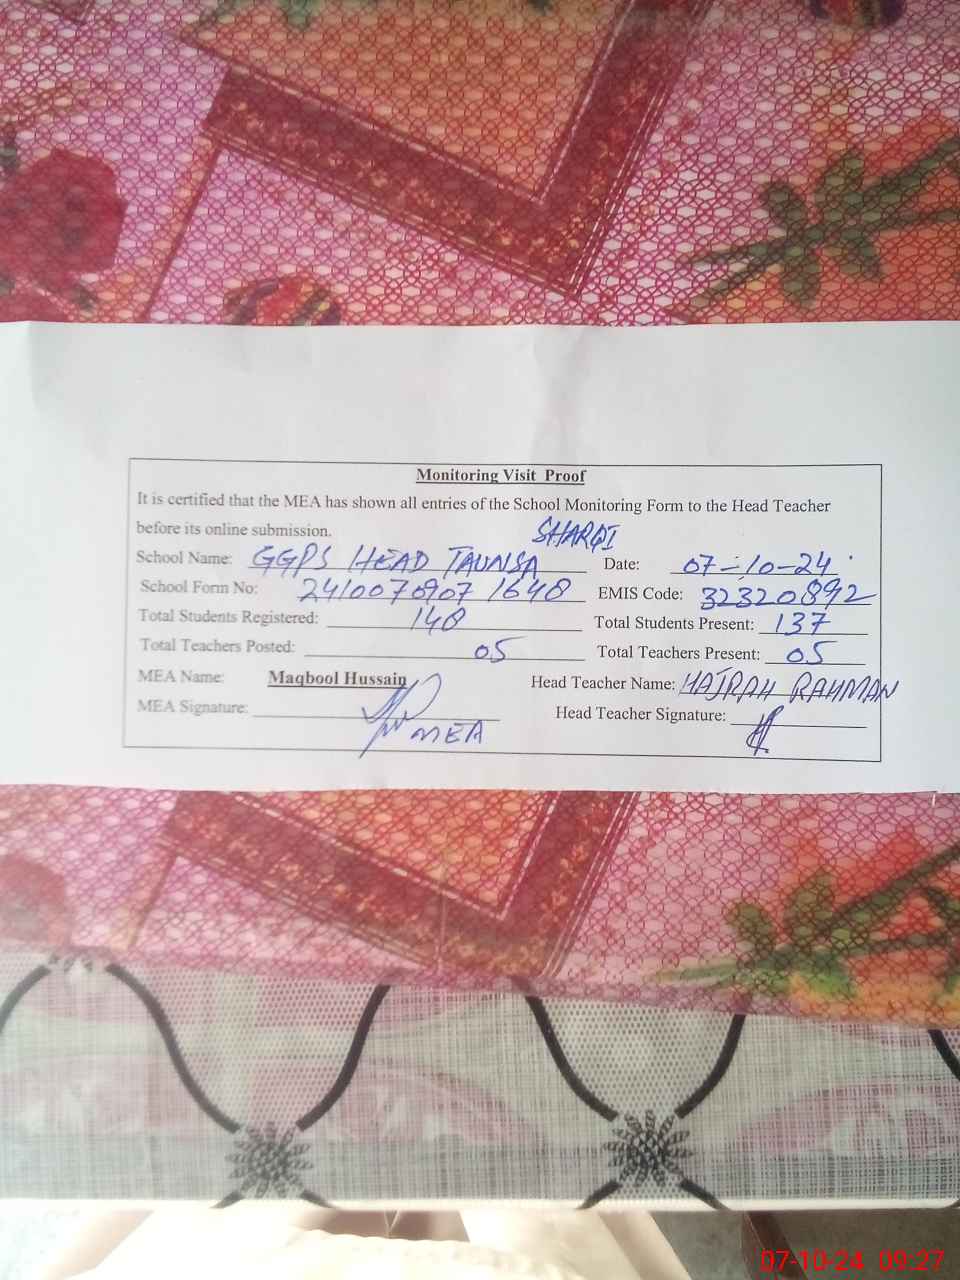 Monitoring Visit Proof
It is certified that the MEA has shown all entries of the School Monitoring Form to the Head Teacher
before its online submission.
SHARQI
School Name: GGPS HEAD TAUNSA Date: 07-10-24
School Form No: 2410070907 1648 EMIS Code: 32320892
Total Students Registered: 148 Total Students Present: 137
Total Teachers Posted: 05 Total Teachers Present: 05
MEA Name: Maqbool Hussain Head Teacher Name: HAJRAH RAHMAN
MEA Signature: MEA Head Teacher Signature:
07-10-24 09:27